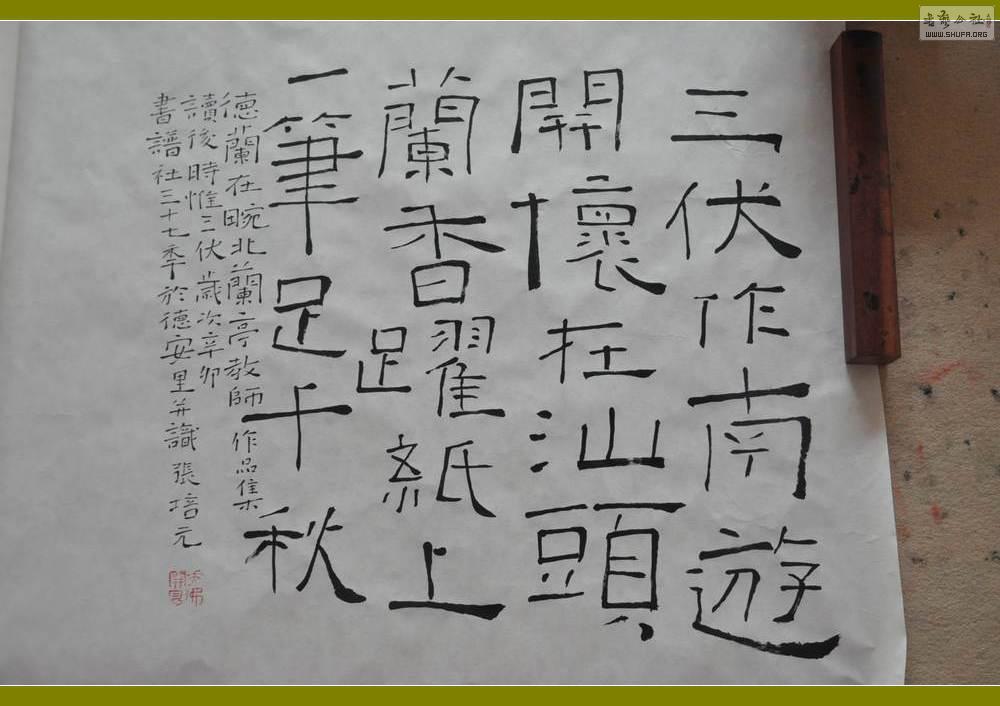 三伏作南遊
開懷在汕頭
蘭香躍紙上
一筆足千秋
德蘭在畹北蘭亭教師作品集
讀後時惟三伏歲次辛卯
書譜社三十七季於德安里並識張培元
書藝公社
WWW.SHUFA.ORG